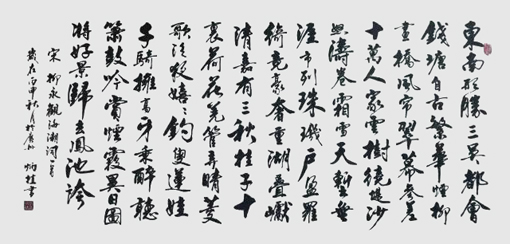 東南形勝三吳都會
錢塘自古繁華煙柳
畫橋風帘翠幕參差
十萬人家雲樹繞堤沙
怒濤卷霜雪天塹無
涯市列珠璣戶盈羅
綺競豪奢重湖疊巘
清嘉有三秋桂子十
裏荷花羌管弄晴菱
歌泛夜嬉嬉釣叟蓮娃
千騎擁高牙乘醉聽
簫鼓吟賞煙霞異日圖
將好景歸去鳳池誇
宋柳永觀海潮詞一首
歲在丙申秋月於廣州炳桂書